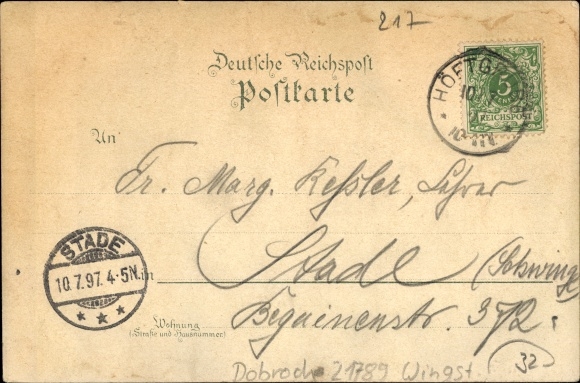 217
Deutsche Reichspost
Postkarte
HÖFTG
10
5
REICHSPOST
An
Fr. Marg. Keßler, Lehrer
STADE
10.7.97. 4-5N.
in Stade (Schwinge
Wohnung
(Straße und Hausnummer)
Beguinenstr. 372.
Dobrock 21789 Wingst
32